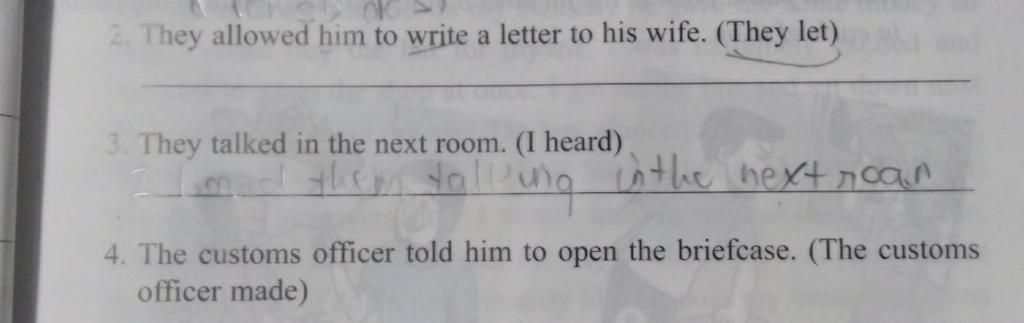 2. They allowed him to write a letter to his wife. (They let)
3. They talked in the next room. (I heard)
I heard them talking in the next room
4. The customs officer told him to open the briefcase. (The customs
officer made)